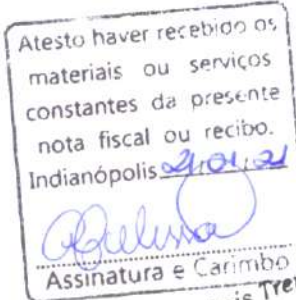 Atesto haver recebido os
materiais ou serviços
constantes da presente
nota fiscal ou recibo.
Indianópolis 21,01,21
Assinatura e Carimbo